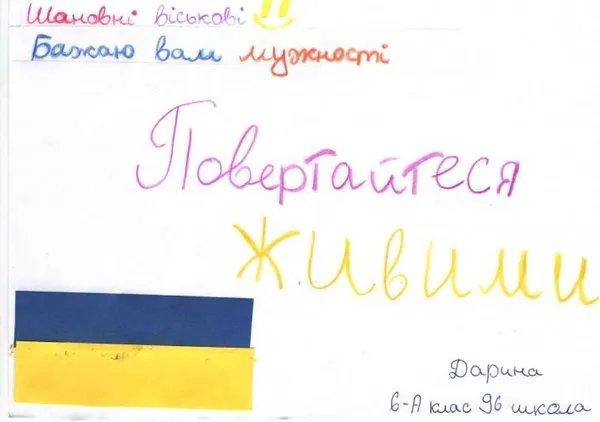 Шановні військові
Бажаю вам мужності
Повертайтеся
живими
Дарина
6-А клас 96 школа